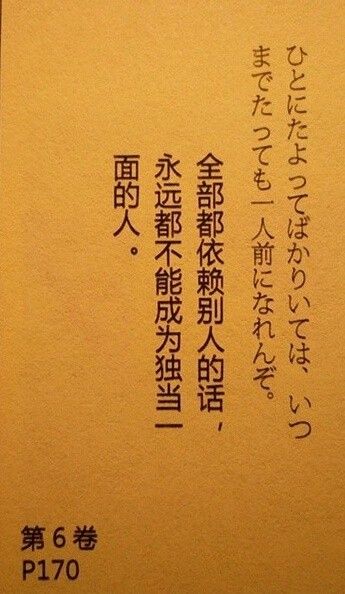 ひとにたよってばかりいては、いつ
までたっても一人前になれんぞ。
全部都依赖别人的话，
永远都不能成为独当一
面的人。
第6卷
P170